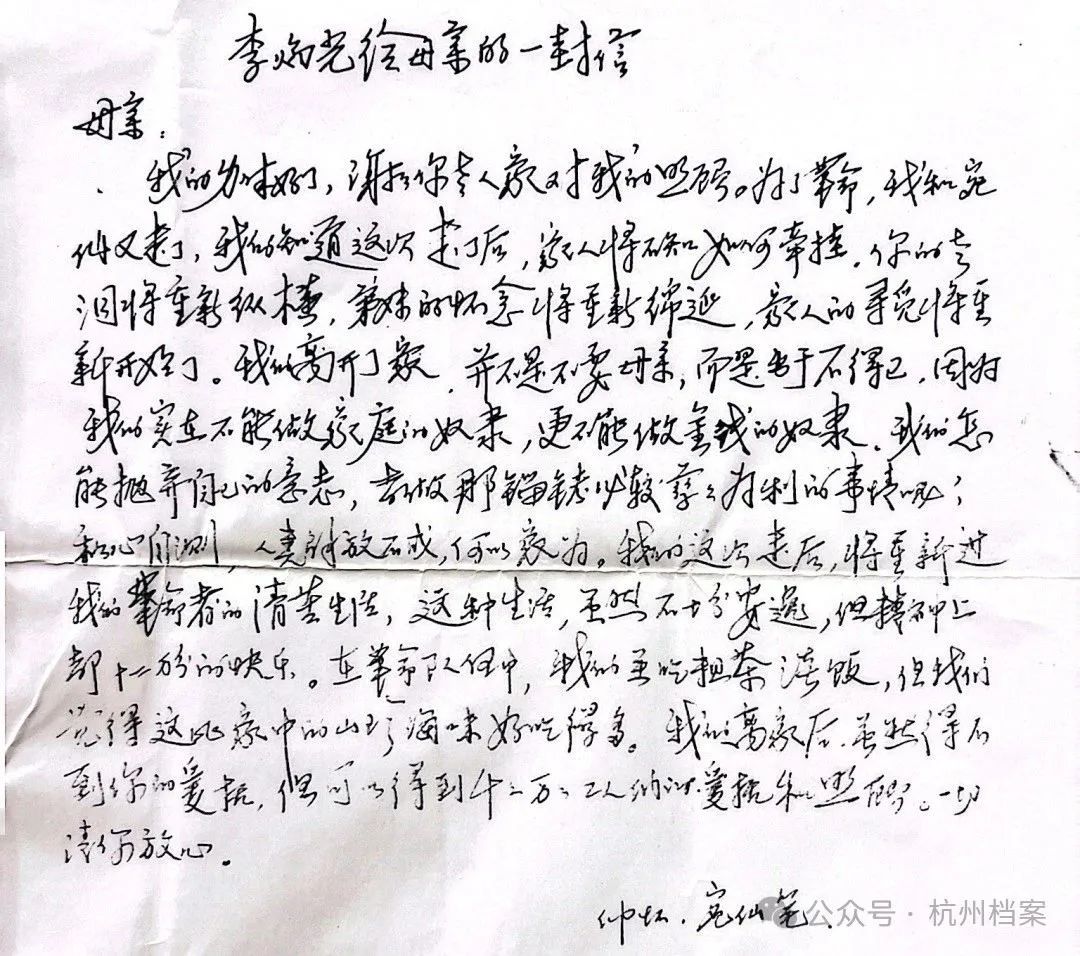 李炳光给母亲的一封信
母亲：
我们的身体好了，谢谢你老人家对我们的照顾。为了革命，我和宛
仙又走了，我们知道这次走了后，家人将不知如何牵挂，你的老
泪将重新纵横，弟妹的怀念将重新绵延，家人的寻觅将重
新开始了。我们离开了家，并不是不要母亲，而是出于不得已，因为
我们实在不能做家庭的奴隶，更不能做金钱的奴隶。我们怎
能抛弃自己的意志，去做那锱铢必较孳孳为利的事情呢；
私心自测，人类解放不成，何以家为。我们这次走后，将重新过
我们革命者的清苦生活，这种生活，虽然不十分安逸，但精神上
却十二分的快乐。在革命队伍中，我们虽吃粗茶淡饭，但我们
觉得这比家中的山珍海味好吃得多。我们离家后，虽然得不
到你的爱抚，但可以得到千千万万工人们的爱抚和照顾。一切
请你放心。
仲怀、宛仙笔
公众号·杭州档案